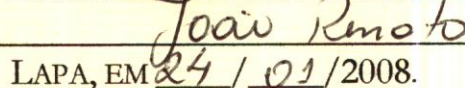 João Renato
LAPA, EM 24 / 01 /2008.